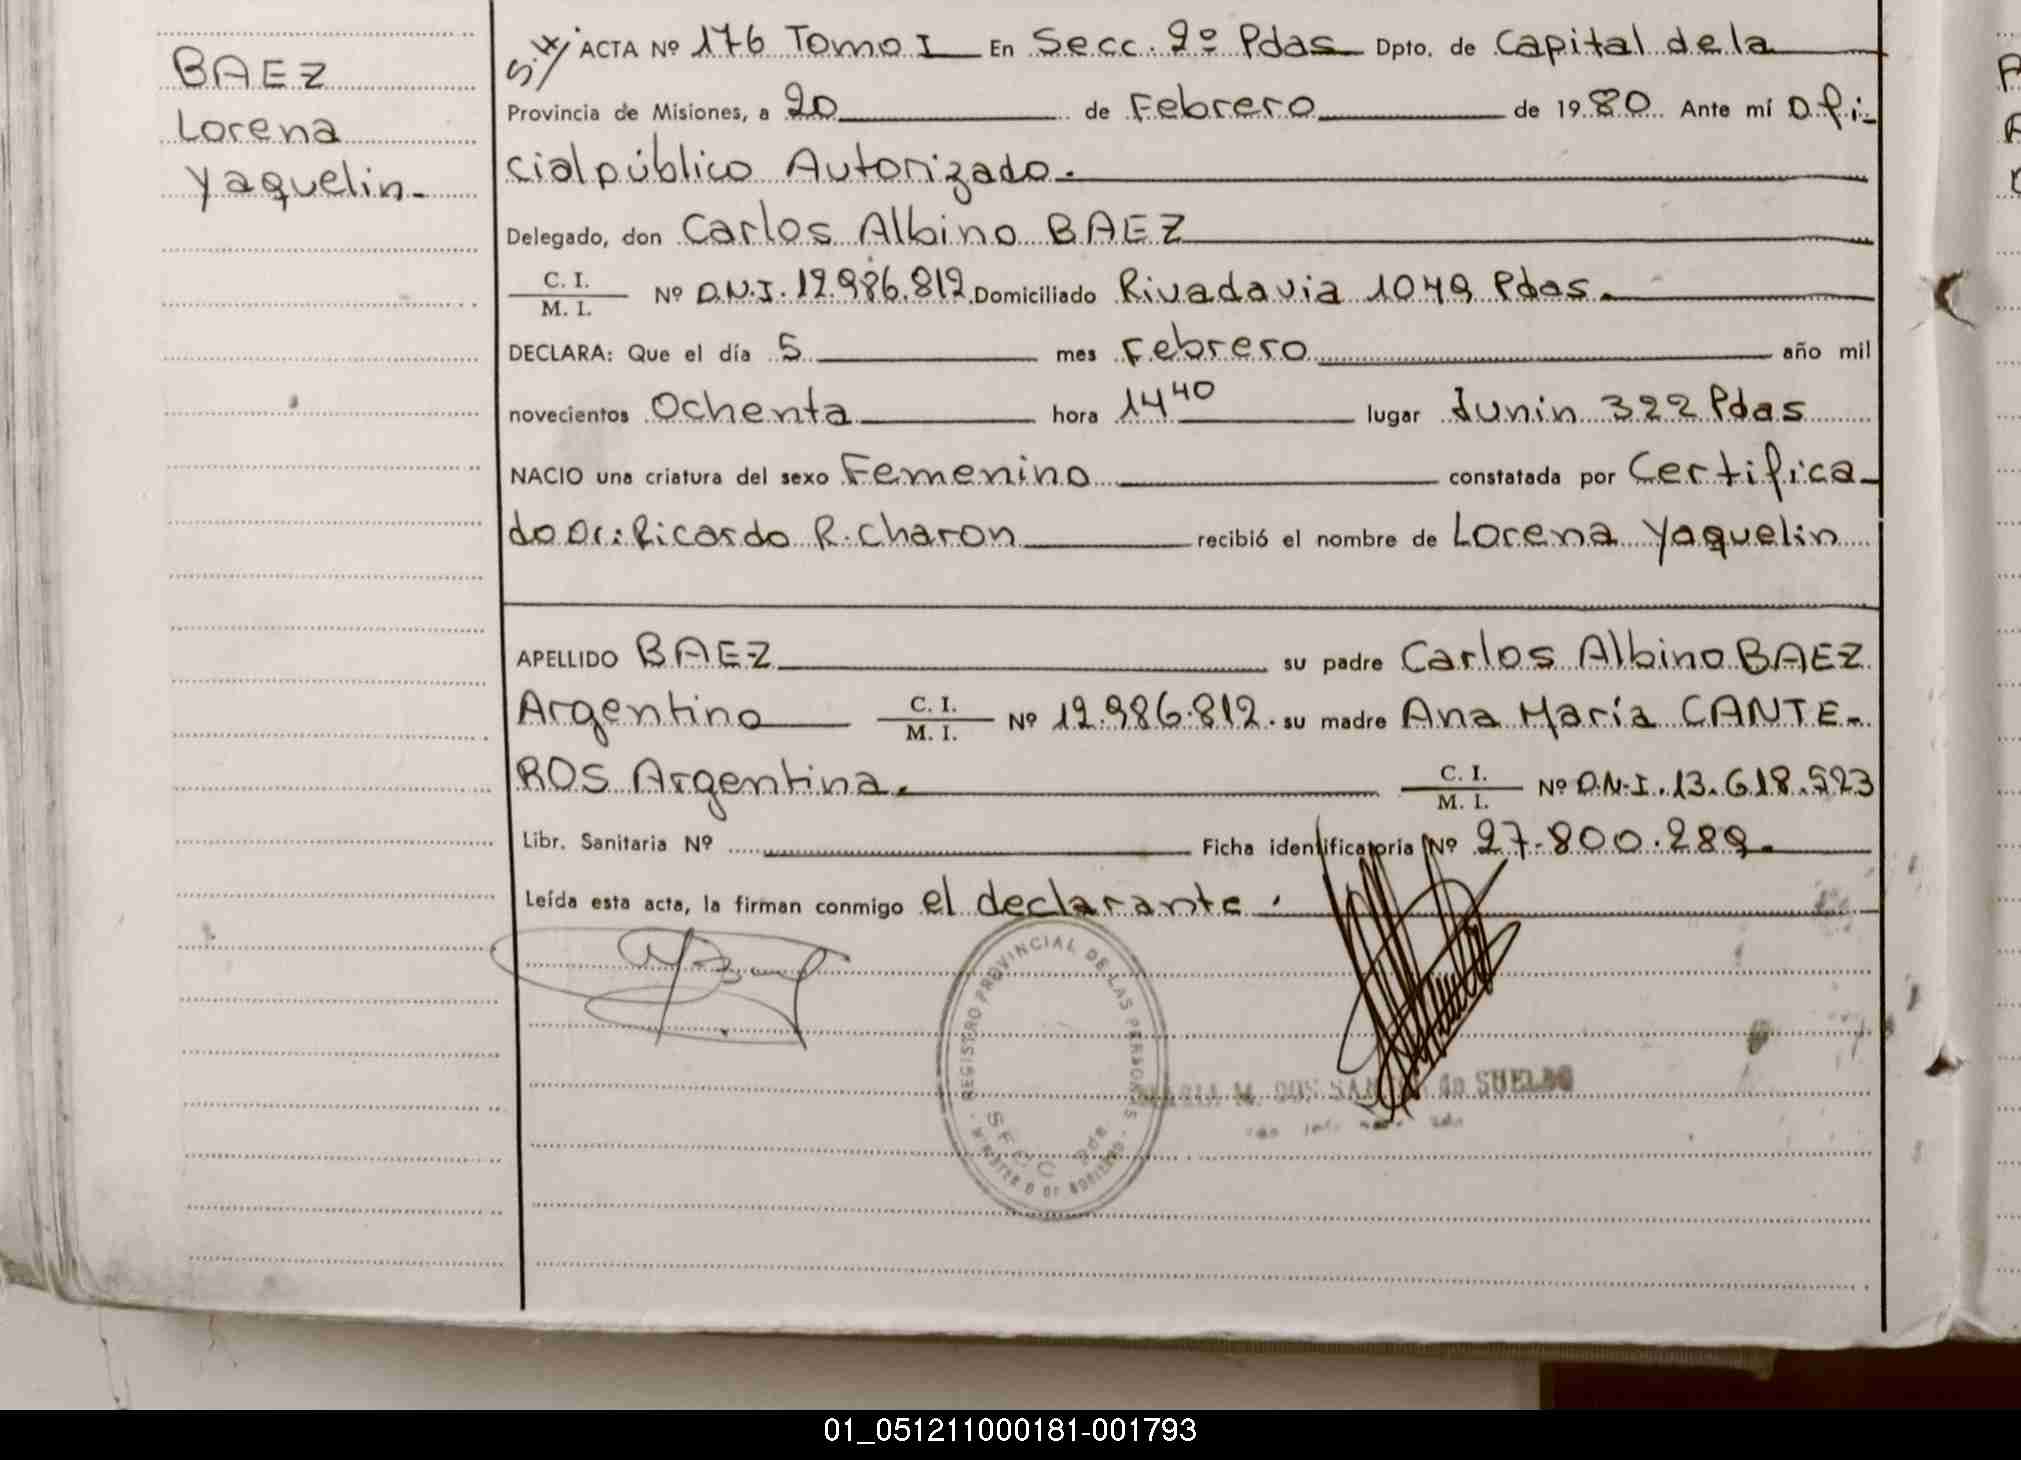 BAEZ
Lorena
Yaquelin-
S.Y/ ACTA Nº 176 Tomo I En Secc. 2º Pdas Dpto. de Capital de la
Provincia de Misiones, a 20 de Febrero de 1980. Ante mí Ofi-
cial público Autorizado.
Delegado, don Carlos Albino BAEZ
C. I.
M. I. Nº D.N.I. 12.986.812 Domiciliado Rivadavia 1049 Pdas.
DECLARA: Que el día 5 mes Febrero año mil
novecientos Ochenta hora 14 40 lugar Junin 322 Pdas
NACIO una criatura del sexo Femenino constatada por Certifica-
do Dr: Ricardo R. Charon recibió el nombre de Lorena Yaquelin
APELLIDO BAEZ su padre Carlos Albino BAEZ
Argentino C. I. M. I. Nº 12.986.812. su madre Ana María CANTE-
ROS Argentina. C. I. M. I. Nº D.N.I. 13.618.523
Libr. Sanitaria Nº Ficha identificatoria Nº 27.800.289.
Leída esta acta, la firman conmigo el declarante.
REGISTRO PROVINCIAL DE LAS PERSONAS
SECC 2da
MINISTERIO DE GOBIERNO
MARIA M. DOS SANTOS de SUELDO
01_051211000181-001793